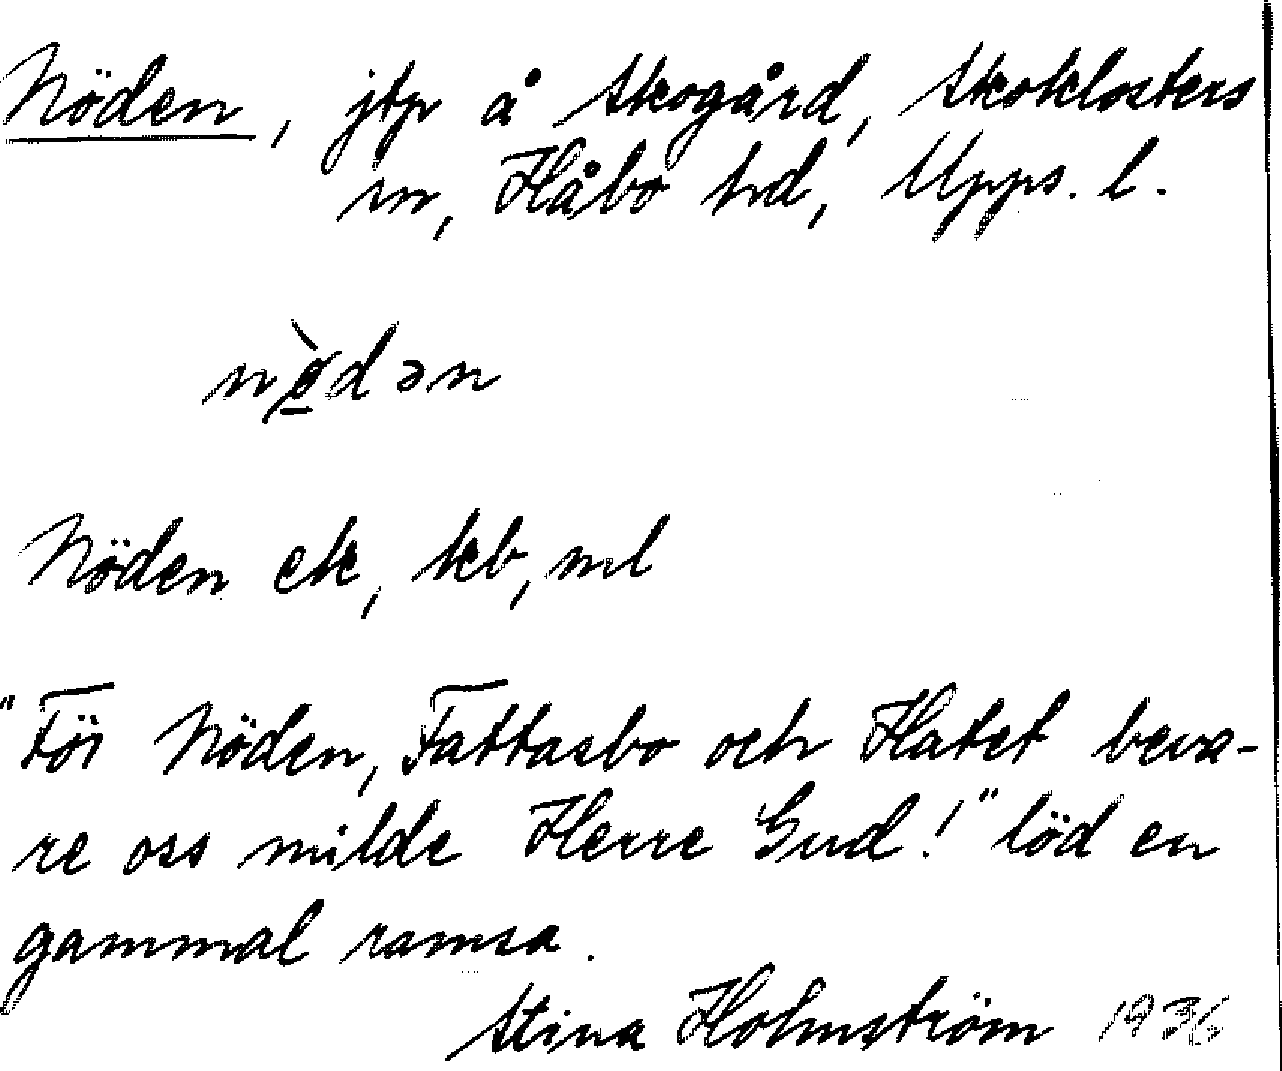 Nöden, jtp å Skogård, Skoklosters
sn, Håbo hd, Upps. l.
nø̠̀dən
Nöden ek, kb, ml
"För Nöden, Fattasbo och Hatet beva-
re oss milde Herre Gud!" löd en
gammal ramsa.
Stina Holmström 1936